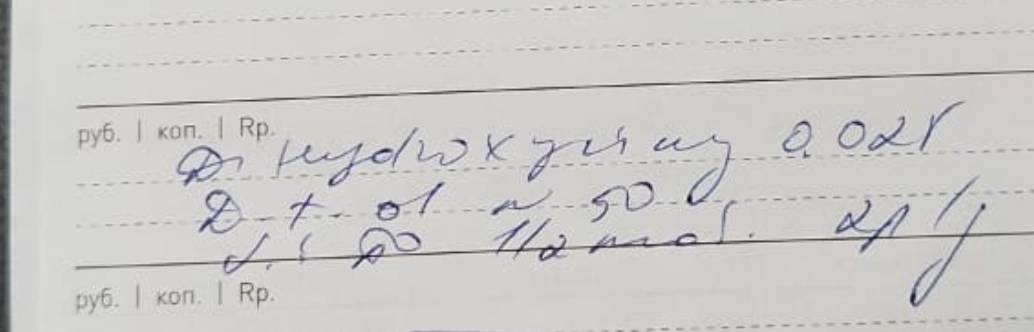 руб. | коп. | Rp.
D. Hydroxyziny 0.025
D. t. d N 50
S. по 1/2 таб. 2р/д
руб. | коп. | Rp.